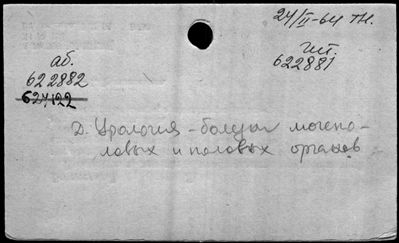 24/II-64 тн.
аб.
622882
чит.
622881
627122
Д. Урология - болезни мочепо-
ловых и половых органов